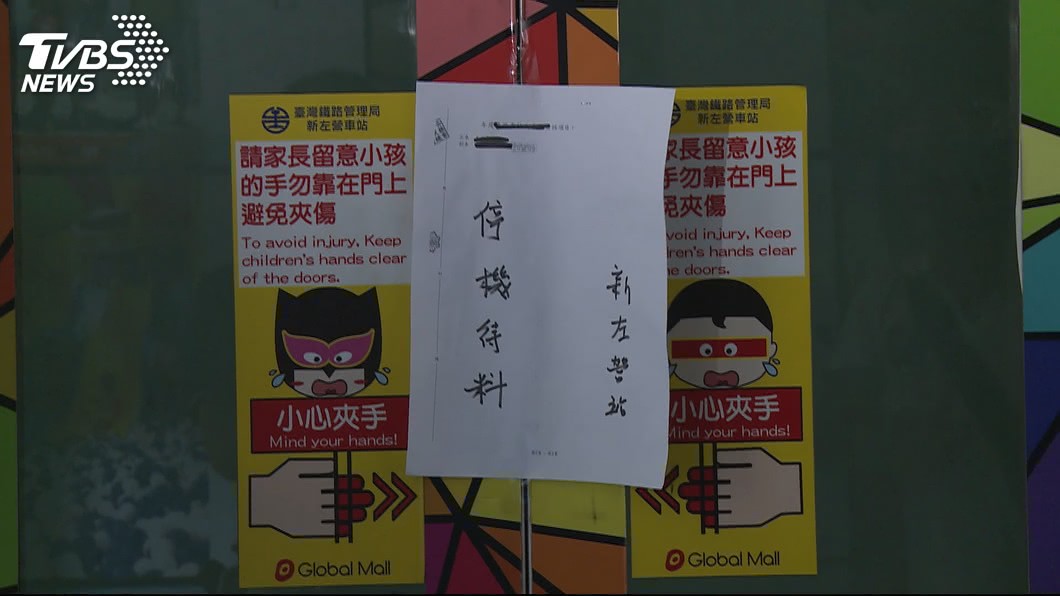 TVBS
NEWS
臺灣鐵路管理局
新左營車站
請家長留意小孩
的手勿靠在門上
避免夾傷
To avoid injury, Keep
children's hands clear
of the doors.
小心夾手
Mind your hands!
Global Mall
停機待料
新左營站
臺灣鐵路管理局
新左營車站
家長留意小孩
手勿靠在門上
免夾傷
void injury, Keep
ren's hands clear
he doors.
小心夾手
Mind your hands!
Global Mall